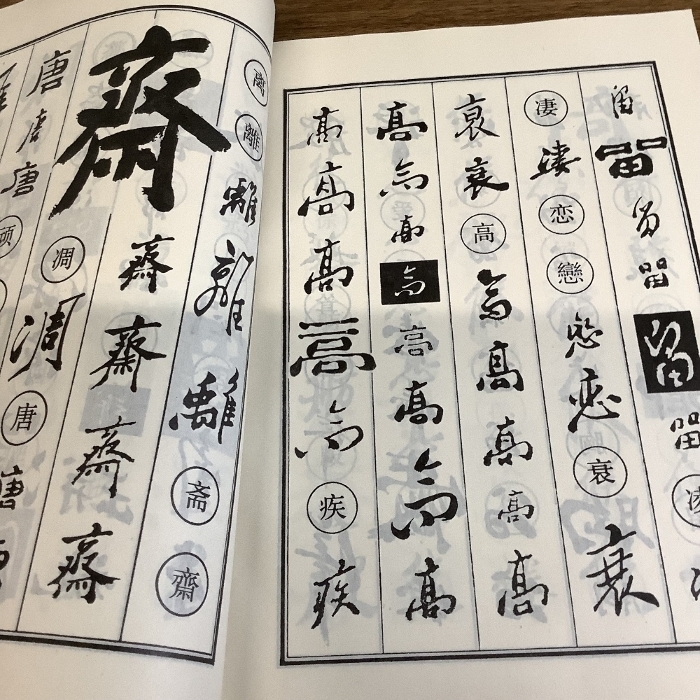 留留留留留留
凄凄恋戀恋恋衰衰
衰衰高高高高高高
高高高高高高高高
高高高高高疾疾
离離離離離斋齋
齋齋齋齋齋
凋凋唐唐
唐唐唐